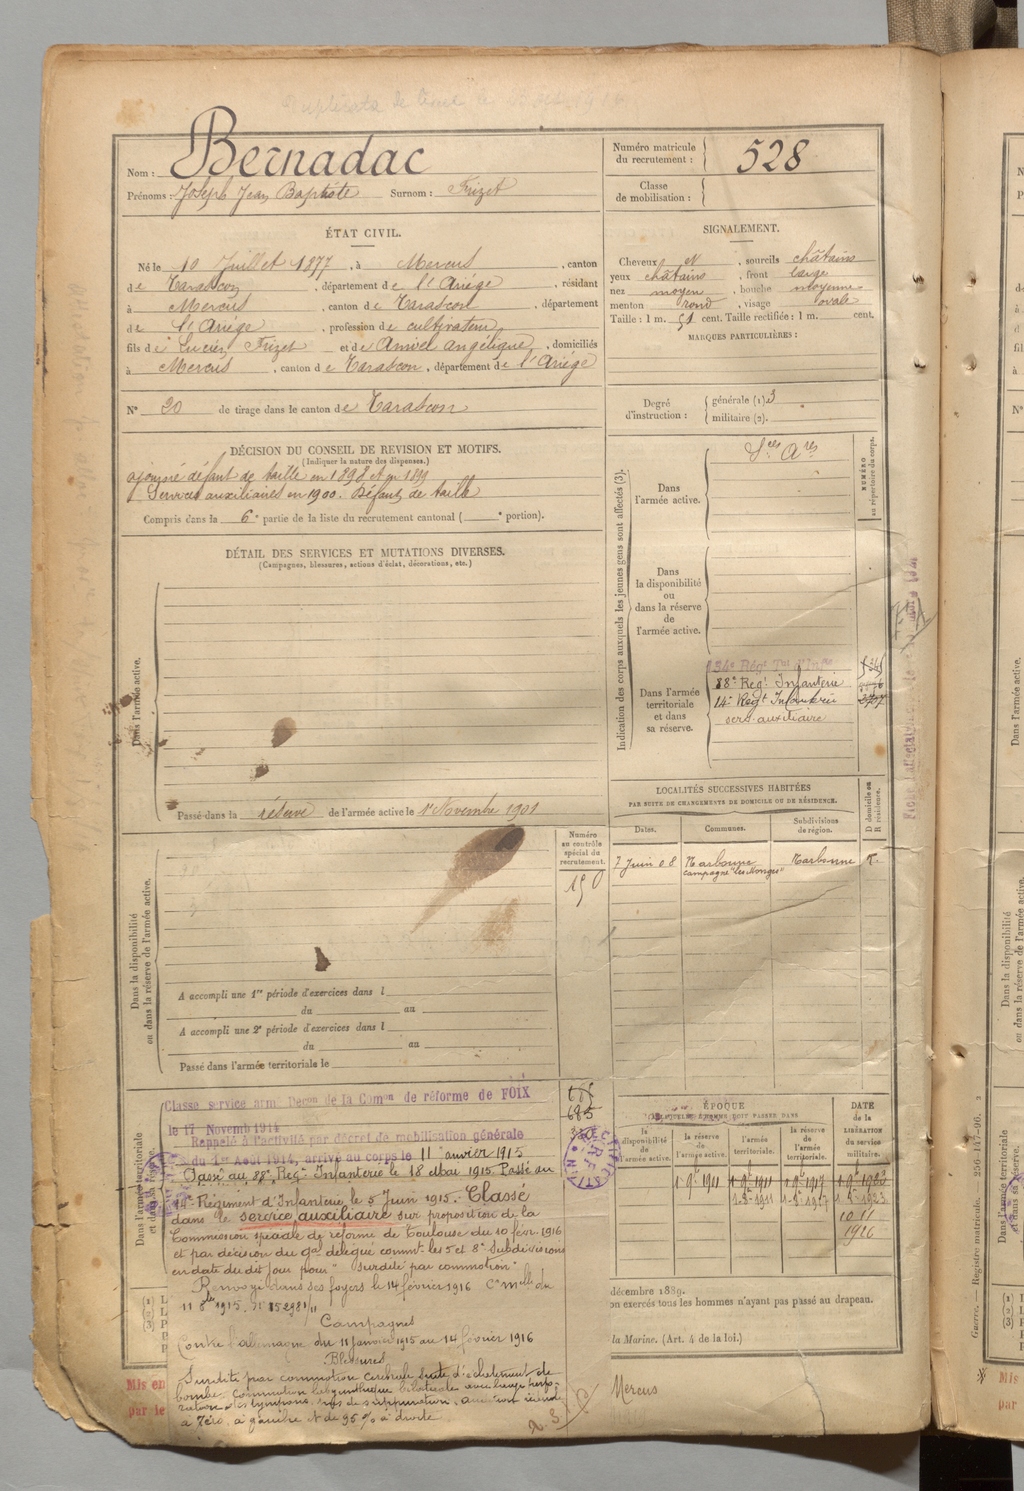 Nom : Bernadac
Prénoms : Joseph Jean Baptiste Surnom : Frizet
Numéro matricule du recrutement : 528
Classe de mobilisation :
ÉTAT CIVIL.
Né le 10 Juillet 1877, à Mercus, canton
de Tarascon, département de l'Ariége, résidant
à Mercus, canton de Tarascon, département
de l'Ariége, profession de cultivateur,
fils de Lucien Frizet et de Amiel angélique, domiciliés
à Mercus, canton de Tarascon, département de l'Ariége
N° 20 de tirage dans le canton de Tarascon
SIGNALEMENT.
Cheveux et, sourcils châtains
yeux châtains, front large
nez moyen, bouche moyenne
menton rond, visage ovale
Taille : 1 m. 51 cent. Taille rectifiée : 1 m. cent.
MARQUES PARTICULIÈRES :
Degré d'instruction : générale (1) 3
militaire (2).
DÉCISION DU CONSEIL DE REVISION ET MOTIFS.
(Indiquer la nature des dispenses.)
ajourné défaut de taille en 1898 et en 1899
Services auxiliaires en 1900. Défaut de taille
Compris dans la 6e partie de la liste du recrutement cantonal ( e portion).
DÉTAIL DES SERVICES ET MUTATIONS DIVERSES.
(Campagnes, blessures, actions d'éclat, décorations, etc.)
Dans l'armée active.
Passé dans la réserve de l'armée active le 1er Novembre 1901
Dans la disponibilité
ou dans la réserve de l'armée active.
Numéro
au contrôle
spécial du
recrutement.
150
A accompli une 1re période d'exercices dans l
du au
A accompli une 2e période d'exercices dans l
du au
Passé dans l'armée territoriale le
Dans l'armée territoriale
et dans
Classé service armé Décon de la Comon de réforme de FOIX
le 17 Novemb 1914
Rappelé à l'activité par décret de mobilisation générale
du 1er Août 1914, arrivé au corps le 11 janvier 1915
Passé au 88e Regt Infanterie le 18 Mai 1915. Passé au
14e Régiment d'Infanterie le 5 Juin 1915. Classé
dans le service auxiliaire sur proposition de la
Commission spéciale de réforme de Toulouse du 10 févr. 1916
et par décision du Gal délégué commt les 5 et 8e Subdivisions
en date du dit jour pour "surdité par commotion"
Renvoyé dans ses foyers le 14 février 1916
11 1915. N° 15298 1/11
Campagnes
Contre l'allemagne du 11 janvier 1915 au 14 février 1916
Blessures
Surdité par commotion cérébrale suite d'éclatement de
bombe. Commotion labyrinthique bilatérale avec large perfo-
ration des tympans, de suppuration,
à zéro, à gauche et de 95 % à droite.
Indication des corps auxquels les jeunes gens sont affectés (3).
NUMÉRO
au répertoire du corps.
Dans
l'armée active.
Sces Ares
Dans
la disponibilité
ou
dans la réserve
de
l'armée active.
Dans l'armée
territoriale
et dans
sa réserve.
134e Régt Tal d'Infie
88e Regt Infanterie
14e Regt Infanterie
serv. auxiliaire
LOCALITÉS SUCCESSIVES HABITÉES
PAR SUITE DE CHANGEMENTS DE DOMICILE OU DE RÉSIDENCE.
Dates. Communes. Subdivisions de région. D domicile ou R résidence.
7 Juin 08 Narbonne Narbonne R.
campagne "les Monges"
ÉPOQUE
A LAQUELLE L'HOMME DOIT PASSER DANS
la disponibilité de l'armée active.
la réserve de l'armée active.
l'armée territoriale.
la réserve de l'armée territoriale.
DATE
de la
LIBÉRATION
du service
militaire.
1 9e 1911 1 9e 1911 1 9e 1917 1 9e 1923
10 11
1926
décembre 1889.
on exercés tous les hommes n'ayant pas passé au drapeau.
la Marine. (Art. 4 de la loi.)
Mercus
Mis en
par le
Guerre. — Registre matricule. — 250-147-96. 2